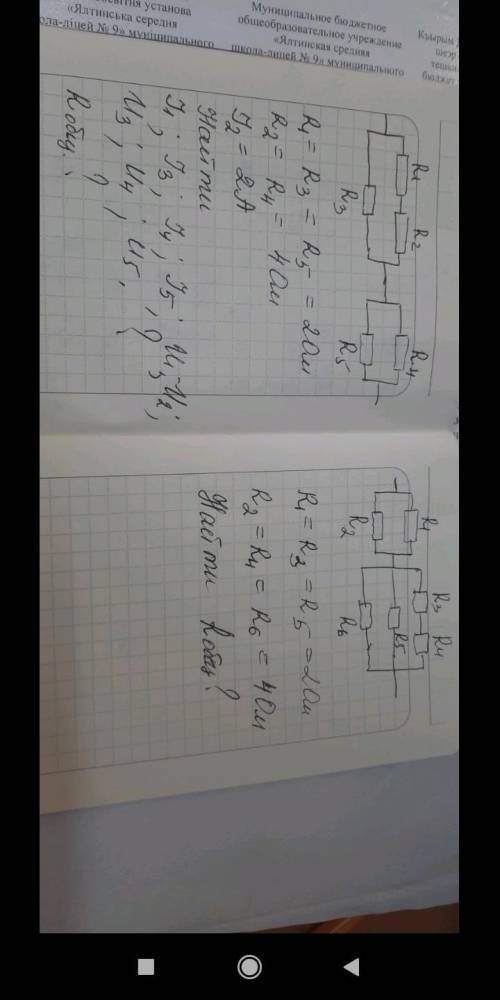 освітня установа
«Ялтинська середня
школа-ліцей № 9» муніципального
Муниципальное бюджетное
общеобразовательное учреждение
«Ялтинская средняя
школа-лицей № 9» муниципального
Къырым
бюджет
R1 R2
R3
R4
R5
R1 = R3 = R5 = 2 Ом
R2 = R4 = 4 Ом
I2 = 2A
Найти
I1; I3; I4; I5; U1; U2;
U3; U4; U5;
Rобщ. ?
R1
R2
R3 R4
R5
R6
R1 = R3 = R5 = 2 Ом
R2 = R4 = R6 = 4 Ом
Найти Rобщ?